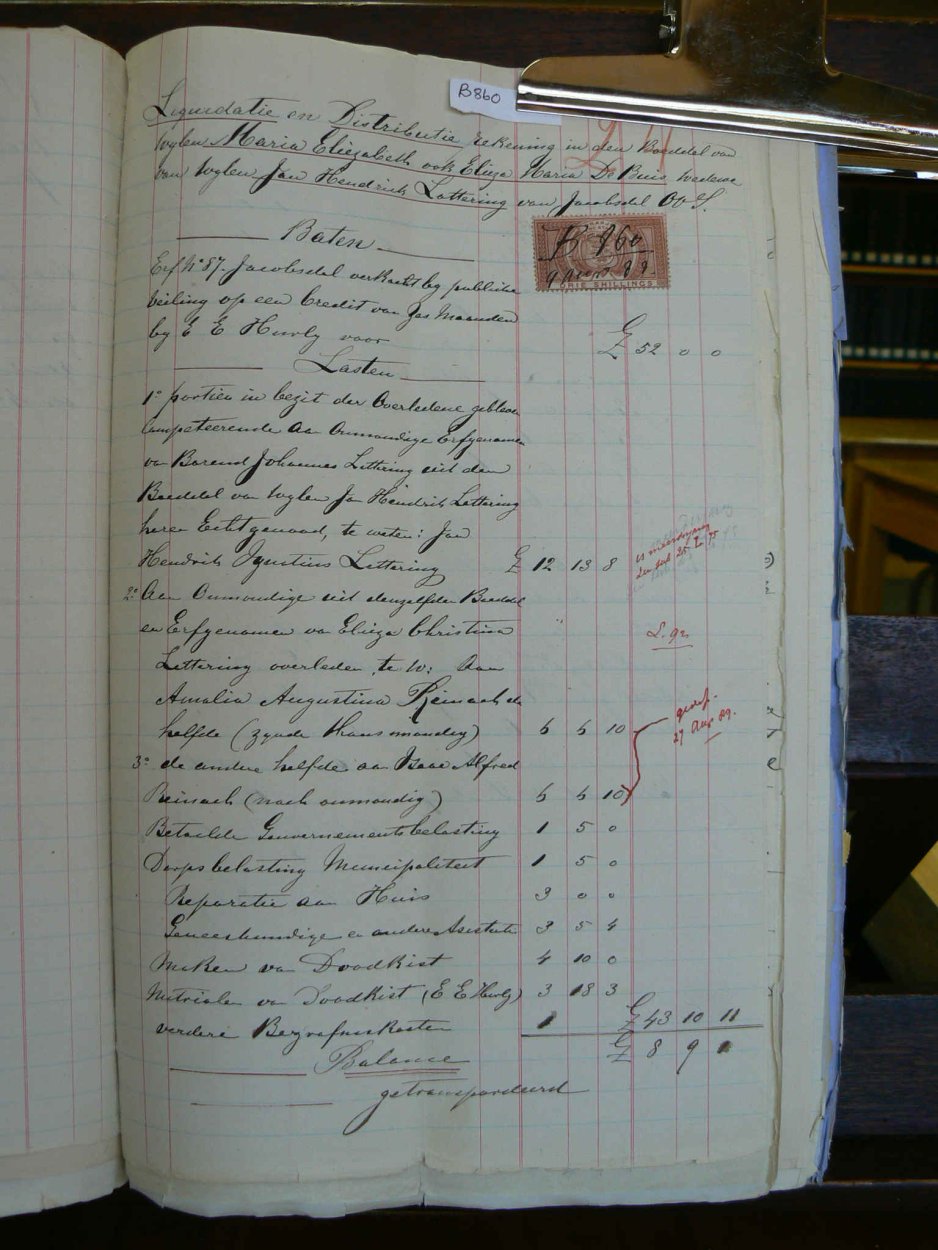 B860
Liquidatie en Distributie rekening in den Boedel van
wylen Maria Eliezabeth ook Elieza Maria De Buis weduwe
van wylen Jan Hendrik Lottering van Jacobsdal OVS.
Baten
B 860
DRIE SHILLINGS
Erf No 87. Jacobsdal verkocht by publieke
veiling op een Credit van Zes Maanden
by E E Hurly voor £ 52 0 0
Lasten
1o portien in bezit der Overledene gebleven
Competeerende aan Onmondige Erfgenamen
van Barend Johannes Lottering uit den
Boedel van wylen Jan Hendrik Lottering
haren Echtgenoot, te weten: Jan
Hendrik Ignatius Lottering £ 12 13 8
2o Aan Onmondige uit denzelfden Boedel
en Erfgenamen van Elieza Christina
Lottering overleden te w: Aan
Amalia Augustina Reinach de
helfde (zynde thans mondig) 6 6 10
27 Aug 89.
3o de andere helfde aan Isaac Alfred
Reinach (noch onmondig) 6 6 10
Betaalde Gouvernementsbelasting 1 5 0
Dorpsbelasting Municipaliteit 1 5 0
Reparatie aan Huis 3 0 0
Geneeskundige en andere Assistentie 3 5 4
Maken van Doodkist 4 10 0
Matrialen van Doodkist (E E Hurly) 3 18 3
verdere Begrafniskosten 1 £ 43 10 11
Balance £ 8 9 1
getransporteerd